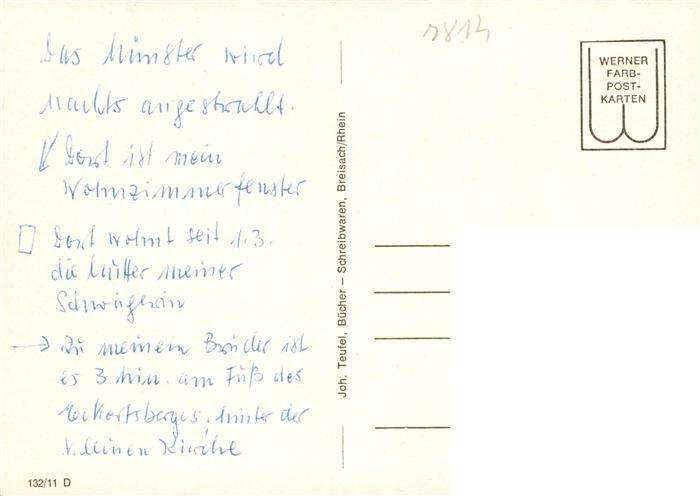 Das Münster wird
nachts angestrahlt.
↙ Dort ist mein
Wohnzimmerfenster
Dort wohnt seit 1.3.
die Mutter meiner
Schwägerin
→ Zu meinem Bruder ist
es 3 Min. am Fuß des
Eckartsberges, hinter der
kleinen Kirche
132/11 D
Joh. Teufel, Bücher – Schreibwaren, Breisach/Rhein
WERNER
FARB-
POST-
KARTEN